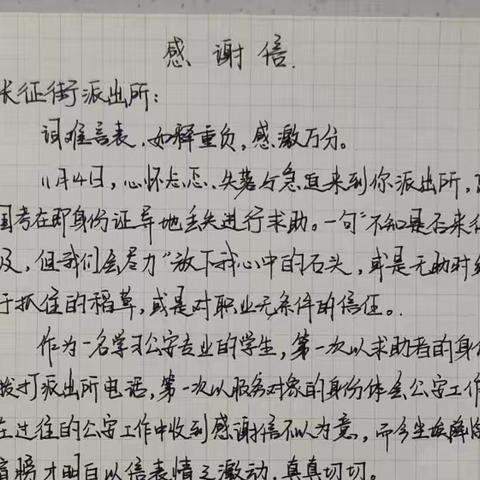 感谢信.
长征街派出所:
词难言表,如释重负,感激万分。
11月4日,心怀忐忑、失落与急迫来到你派出所,
国考在即身份证异地丢失进行求助。一句“不知是否来得
及,但我们会尽力”放下我心中的石头,或是无助时终
于抓住的稻草,或是对职业无条件的信任。
作为一名学习公安专业的学生,第一次以求助者的身份
拨打派出所电话,第一次以服务对象的身份体会公安工作
在过往的公安工作中收到感谢信不以为意,而今坐
才明白以信表情之激动,真真切切。